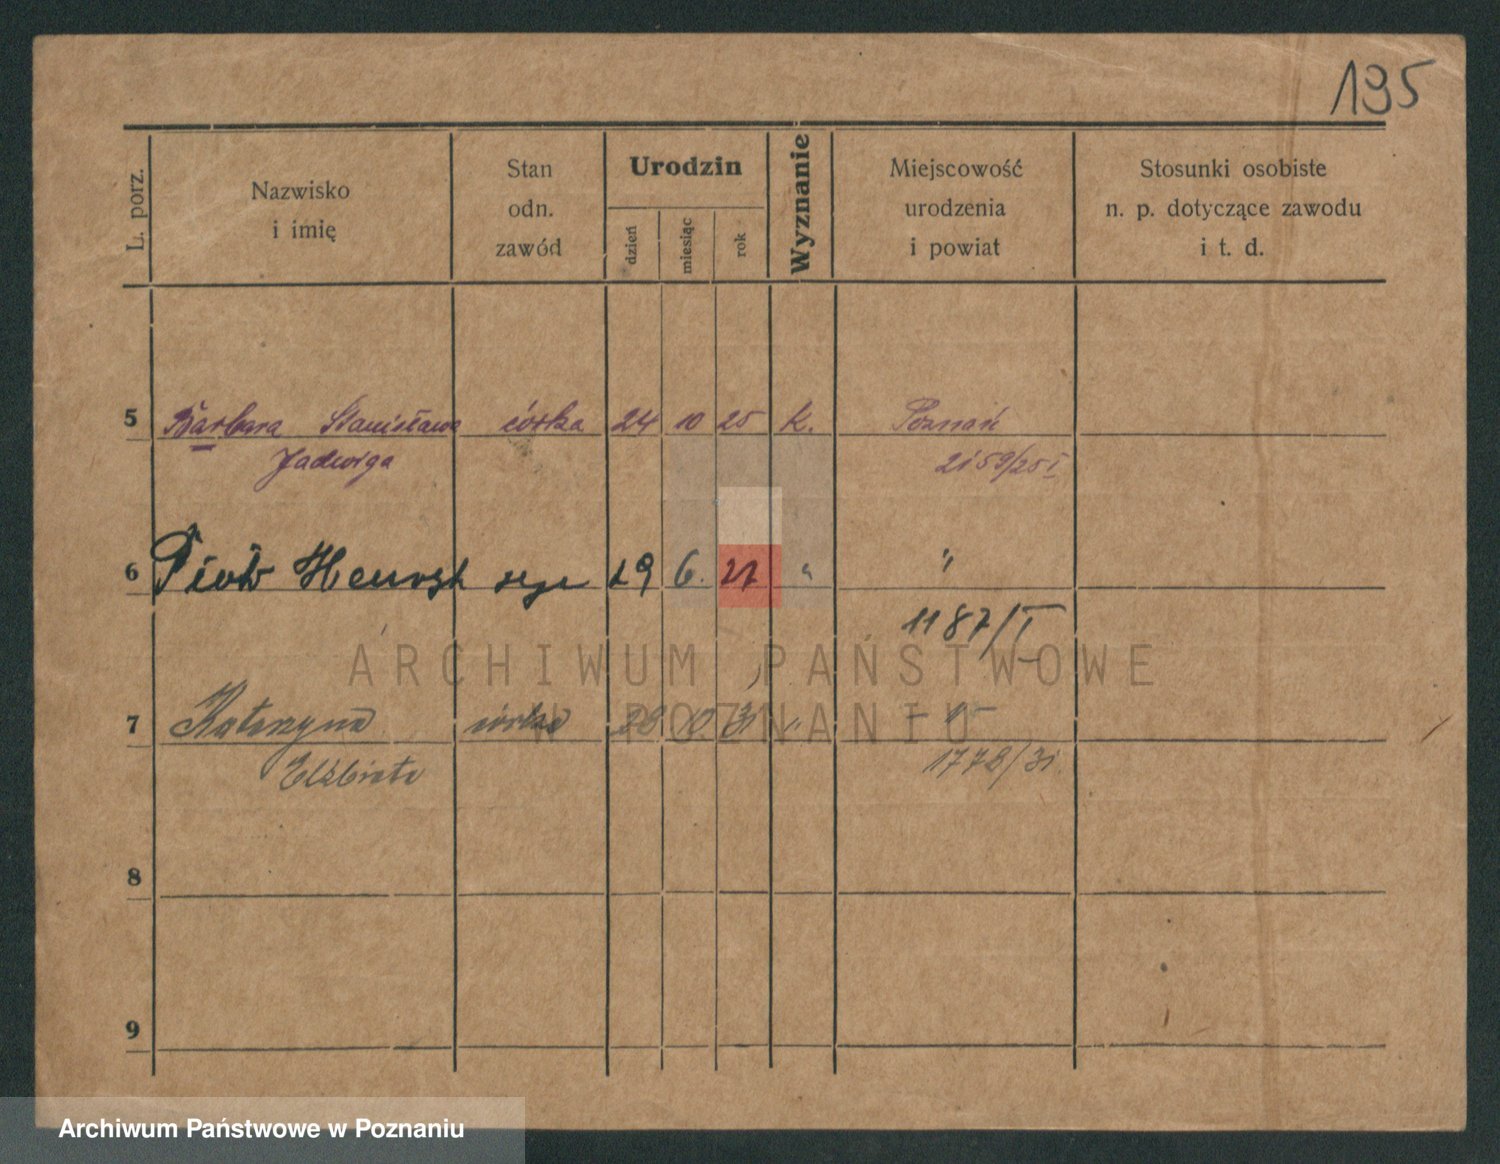 195
L. porz.
Nazwisko
i imię
Stan
odn.
zawód
Urodzin
dzień
miesiąc
rok
Wyznanie
Miejscowość
urodzenia
i powiat
Stosunki osobiste
n. p. dotyczące zawodu
i t. d.
5 Barbara Stanisława córka 24 10 25 K. Poznań
Jadwiga 2159/25 I
6 Piotr Henryk syn 29 6. 27 " "
1187/I
ARCHIWUM PAŃSTWOWE
7 Katarzyna córka 10 31 " - " -
W POZNANIU
Elżbieta 1772/31.
8
9
Archiwum Państwowe w Poznaniu